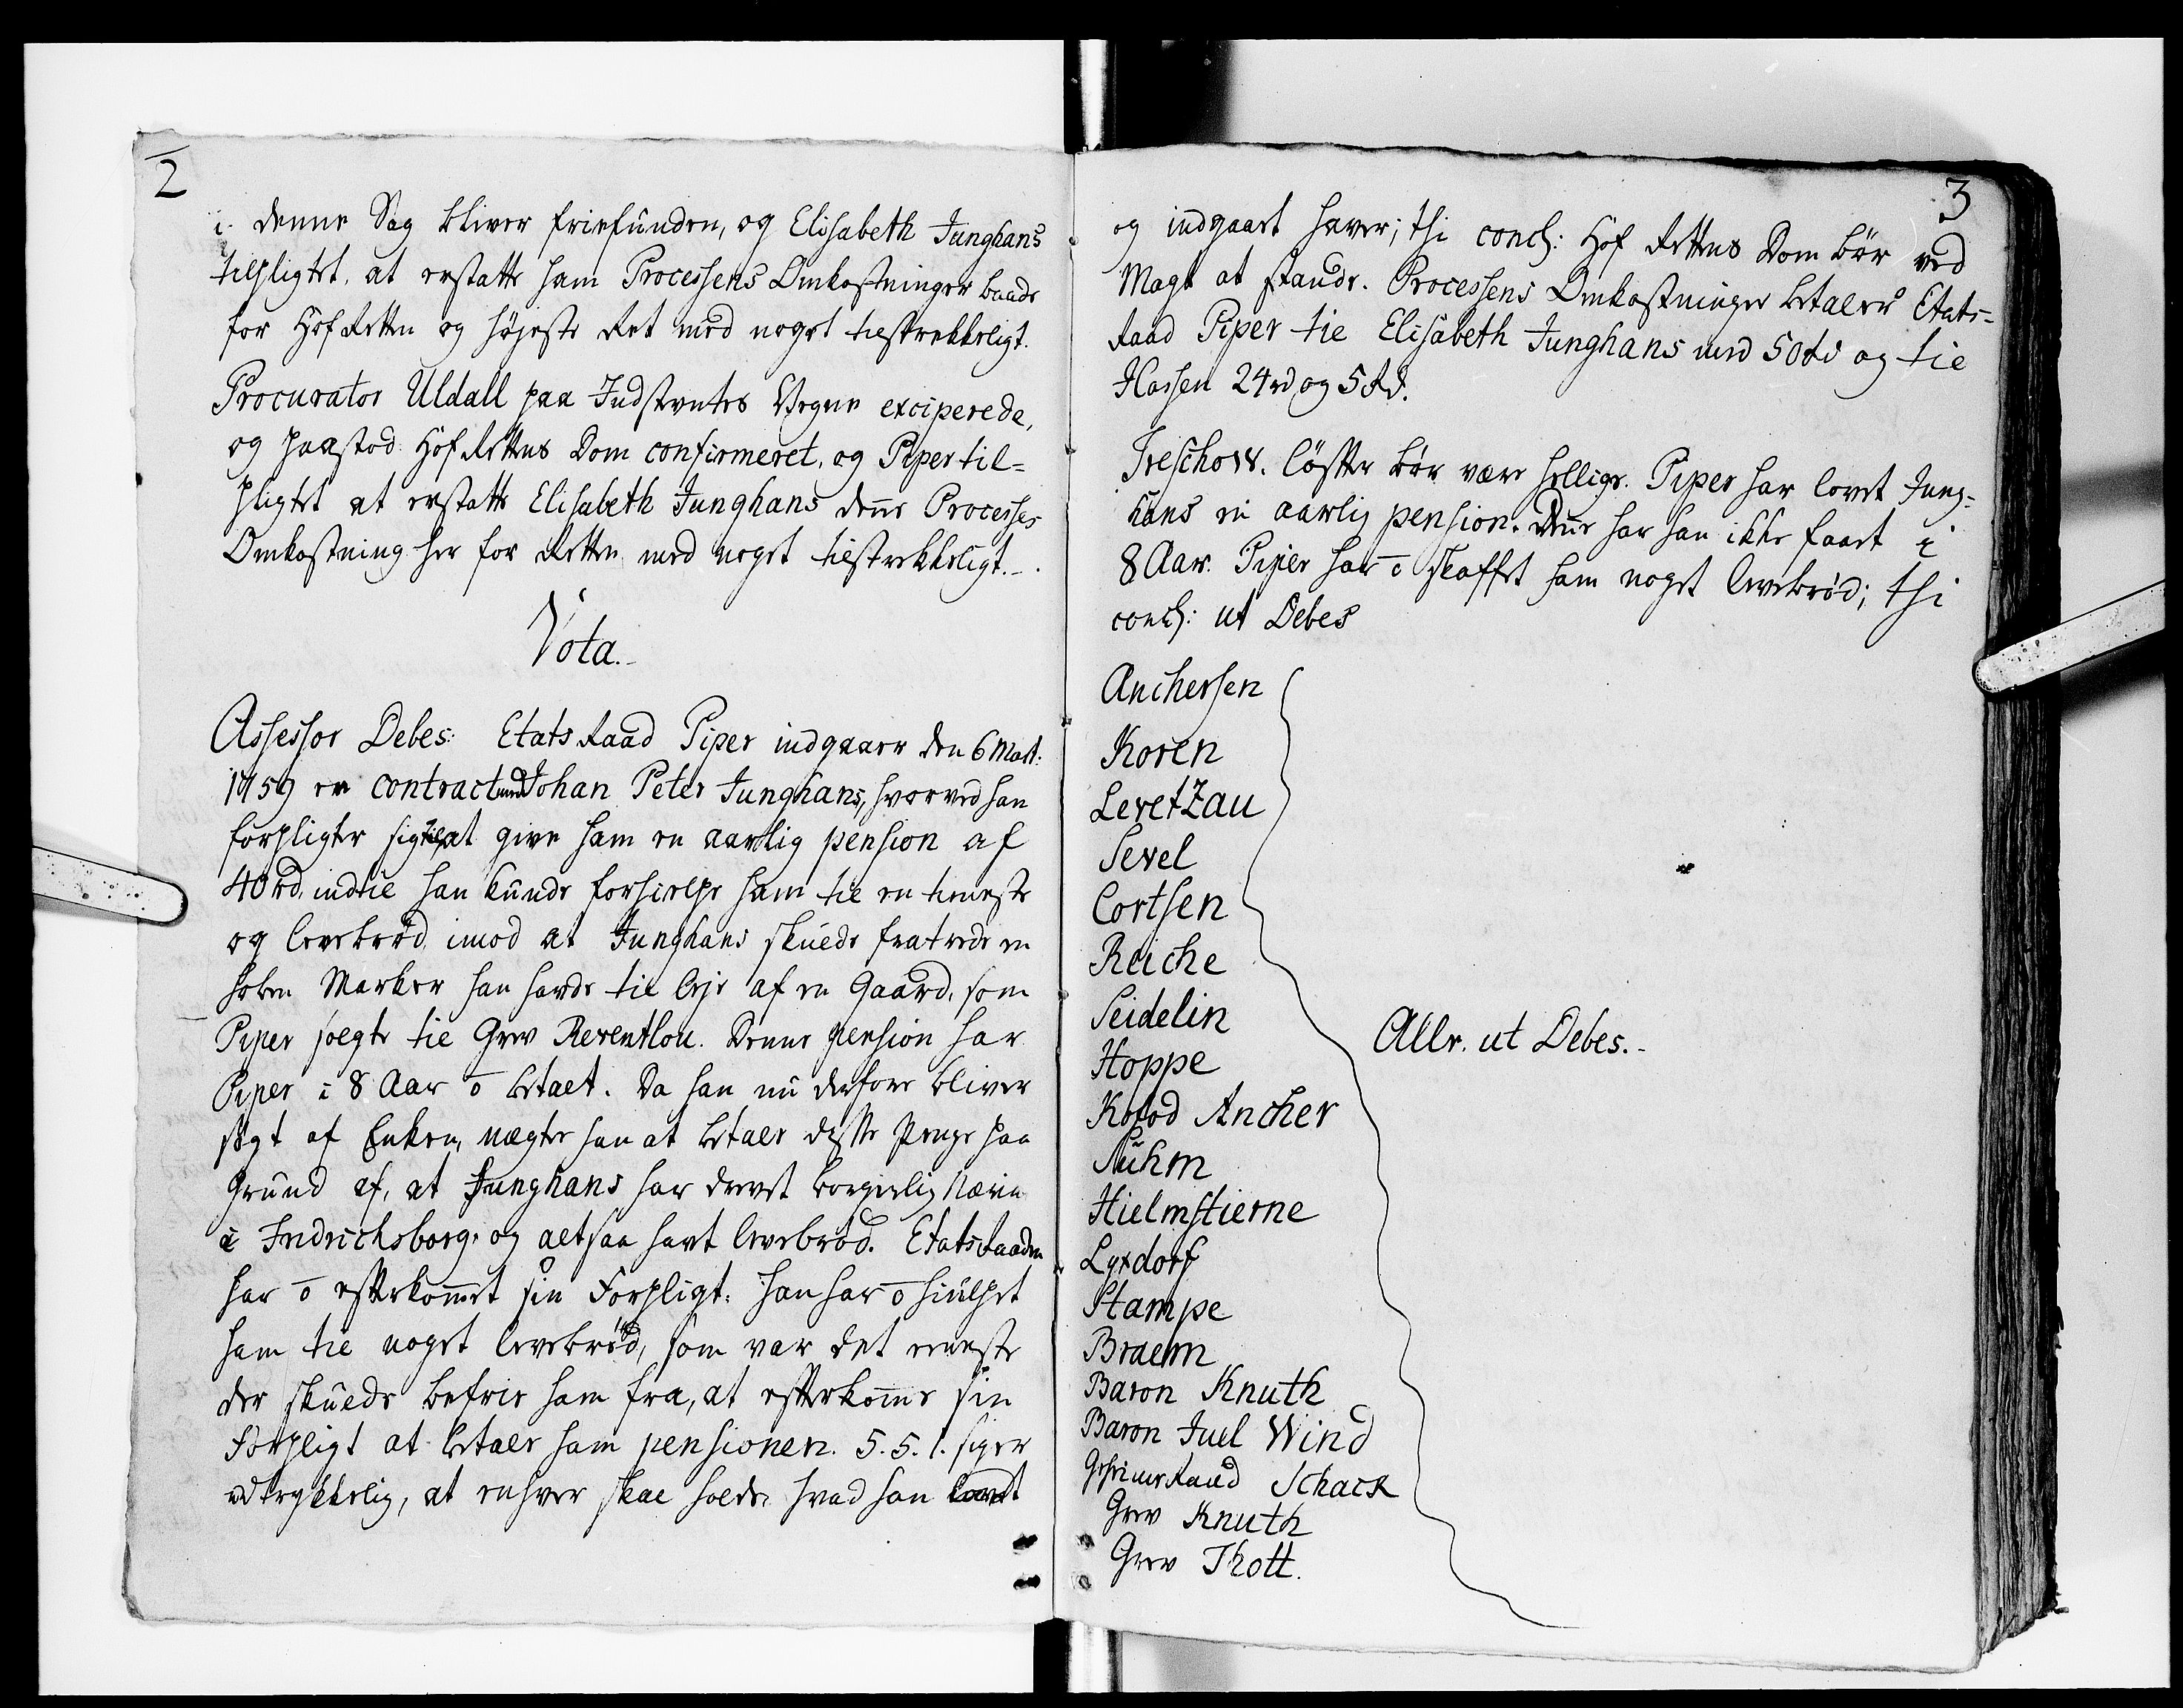 2
i denne Sag bliver friefunden, og Elisabeth Junghans
tilpligtet, at erstatte ham Processens Omkostninger baade
for Hof Retten og Højeste Ret med noget tilstrekkeligt.
Procurator Uldall paa Indstevntes Vegne exciperede,
og paastod Hof Rettens Dom confirmeret, og Piper til-
pligtet at erstatte Elisabeth Junghans denne Processes
Omkostning her for Retten med noget tilstrekkeligt.
Vota.
Assessor Debes: Etats Raad Piper indgaaer den 6 Mart:
1759 en contract med Johan Peter Junghans, hvorved han
forpligter sig til at give ham en aarlig pension af
40 rd. indtil han kunde forhielpe ham til en tieneste
og levebrød imod at Junghans skulde fratrede en
Marker han havde til leje af en Gaard, som
Piper solgte til Grev Reventlou. Denne pension har
Piper i 8 Aar ō betalt. Da han nu derfore bliver
søgt af Enken, nægter han at betale disse Penge paa
Grund af, at Junghans har drevet borgerlig Næring
i Fridrichsborg, og altsaa havt levebrød. Etats Raaden
har ō efterkommet sin Forpligt: han har ō hiulpet
ham til noget levebrød, som var det eeneste
der skulde befrie ham fra, at efterkomme sin
Forpligt at betale ham pensionen. 5. 5. 1. siger
udtrykkelig, at enhver skal holde hvad han lovet
3
og indgaaet haver; thi concl: Hof Rettens Dom bør ved
Magt at stande. Processens Omkostninger betaler Etats-
Raad Piper til Elisabeth Junghans med 50 rd og til
Kassen 24 rd og 5 Rd.
Treschow. Løfter bør være hellige. Piper har lovet Jung-
hans en aarlig pension. Denne har han ikke faaet i
8 Aar. Piper har ō skaffet ham noget levebrød; thi
concl: ut Debes
Anchersen
Koren
Levetzau
Sevel
Cortsen
Reiche
Seidelin
Hoppe
Kofod Ancher
Suhm
Hielmstierne
Lyxdorf
Stampe
Braem
Baron Knuth
Baron Juel Wind
Geheime Raad Schack
Grev Knuth
Grev Thott.
Alle. ut Debes.